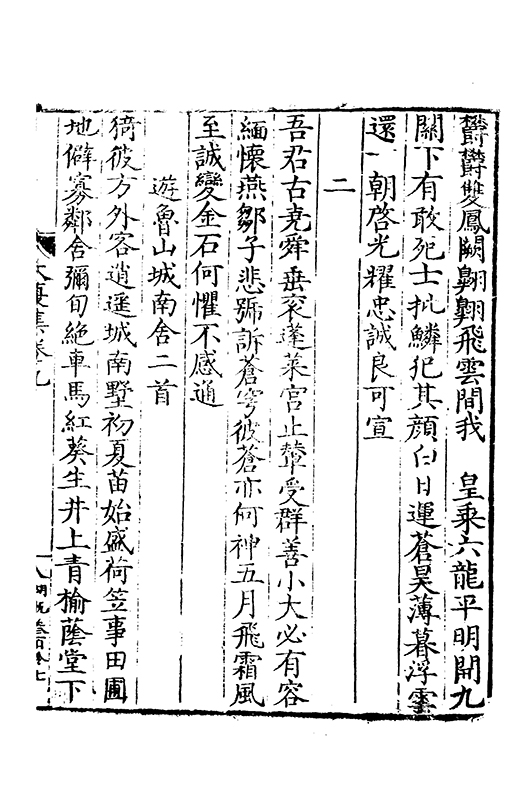 鬱鬱雙鳳闕翺翺飛雲間我　皇乘六龍平明開九
關下有敢死士批鱗犯其顏白日運蒼昊薄暮浮雲
還一朝啓光耀忠誠良可宣
二
吾君古堯舜垂衮蓬萊宮止輦受群善小大必有容
緬懷燕鄒子悲號訴蒼穹彼蒼亦何神五月飛霜風
至誠變金石何懼不感通
遊魯山城南舍二首
猗彼方外客逍遥城南墅初夏苗始盛荷笠事田圃
地僻寡鄰舍彌旬絶車馬紅葵生井上青榆蔭堂下
大復集卷九
八